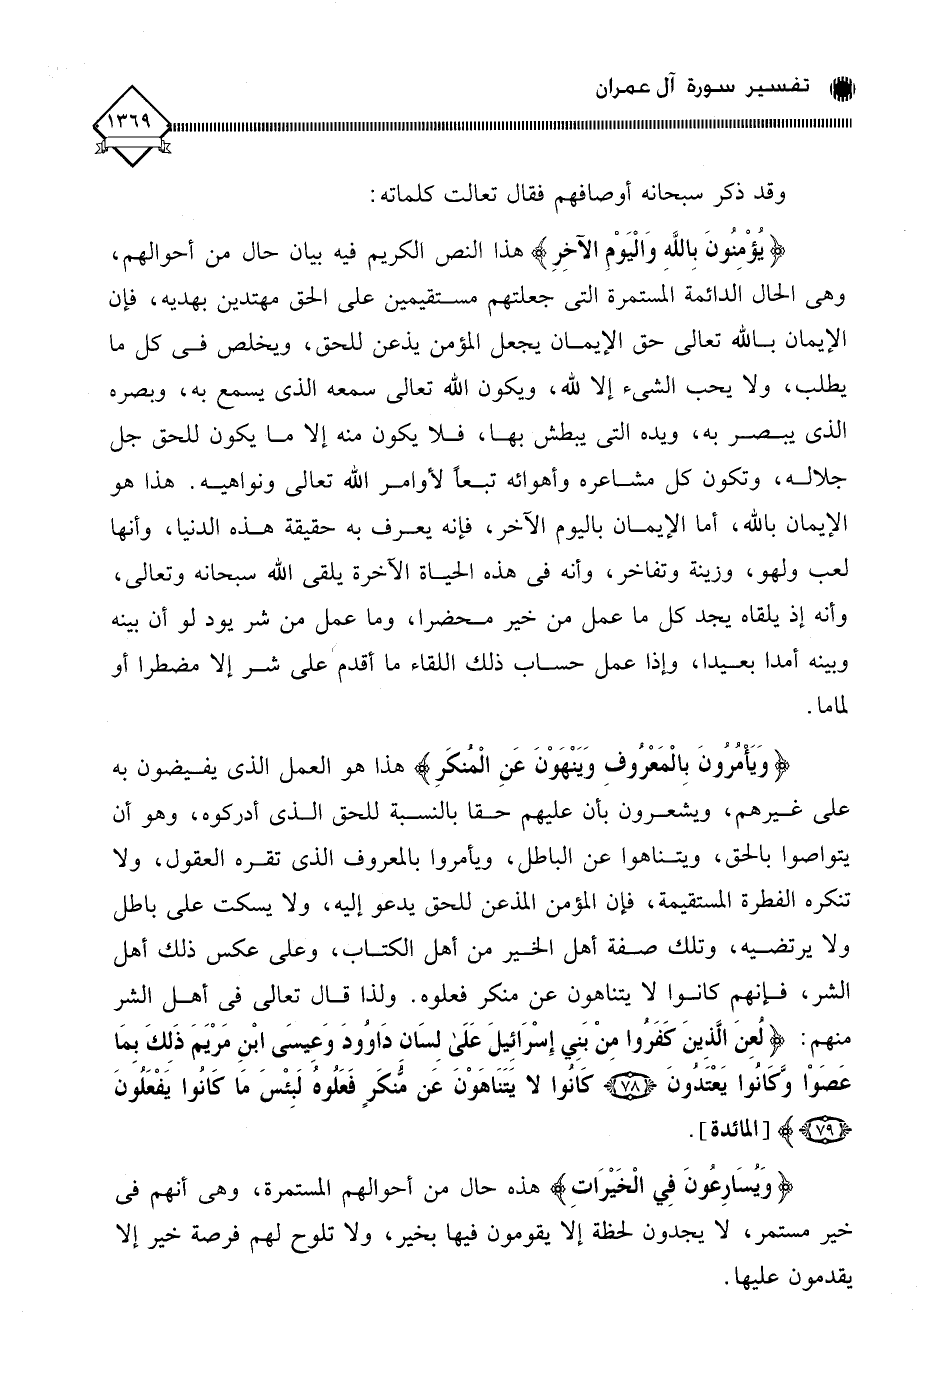 تفسير سورة آل عمران
١٣٦٩
وقد ذكر سبحانه أوصافهم فقال تعالت كلماته:
﴿ يُؤْمِنُونَ بِاللَّهِ وَالْيَوْمِ الآخِرِ ﴾ هذا النص الكريم فيه بيان حال من أحوالهم،
وهى الحال الدائمة المستمرة التى جعلتهم مستقيمين على الحق مهتدين بهديه، فإن
الإيمان بالله تعالى حق الإيمان يجعل المؤمن يذعن للحق، ويخلص فى كل ما
يطلب، ولا يحب الشىء إلا لله، ويكون الله تعالى سمعه الذى يسمع به، وبصره
الذى يبصر به، ويده التى يبطش بها، فلا يكون منه إلا ما يكون للحق جل
جلاله، وتكون كل مشاعره وأهوائه تبعاً لأوامر الله تعالى ونواهيه. هذا هو
الإيمان بالله، أما الإيمان باليوم الآخر، فإنه يعرف به حقيقة هذه الدنيا، وأنها
لعب ولهو، وزينة وتفاخر، وأنه فى هذه الحياة الآخرة يلقى الله سبحانه وتعالى،
وأنه إذ يلقاه يجد كل ما عمل من خير محضرا، وما عمل من شر يود لو أن بينه
وبينه أمدا بعيدا، وإذا عمل حساب ذلك اللقاء ما أقدم على شر إلا مضطرا أو
لماما.
﴿ وَيَأْمُرُونَ بِالْمَعْرُوفِ وَيَنْهَوْنَ عَنِ الْمُنكَرِ ﴾ هذا هو العمل الذى يفيضون به
على غيرهم، ويشعرون بأن عليهم حقا بالنسبة للحق الذى أدركوه، وهو أن
يتواصوا بالحق، ويتناهوا عن الباطل، ويأمروا بالمعروف الذى تقره العقول، ولا
تنكره الفطرة المستقيمة، فإن المؤمن المذعن للحق يدعو إليه، ولا يسكت على باطل
ولا يرتضيه، وتلك صفة أهل الخير من أهل الكتاب، وعلى عكس ذلك أهل
الشر، فإنهم كانوا لا يتناهون عن منكر فعلوه. ولذا قال تعالى فى أهل الشر
منهم: ﴿ لُعِنَ الَّذِينَ كَفَرُوا مِنْ بَنِي إِسْرَائِيلَ عَلَىٰ لِسَانِ دَاوُودَ وَعِيسَى ابْنِ مَرْيَمَ ذَلِكَ بِمَا
عَصَوْا وَّكَانُوا يَعْتَدُونَ ﴿٧٨﴾ كَانُوا لا يَتَنَاهَوْنَ عَن مُّنكَرٍ فَعَلُوهُ لَبِئْسَ مَا كَانُوا يَفْعَلُونَ
﴿٧٩﴾ ﴾ [المائدة].
﴿ وَيُسَارِعُونَ فِي الْخَيْرَاتِ ﴾ هذه حال من أحوالهم المستمرة، وهى أنهم فى
خير مستمر، لا يجدون لحظة إلا يقومون فيها بخير، ولا تلوح لهم فرصة خير إلا
يقدمون عليها.